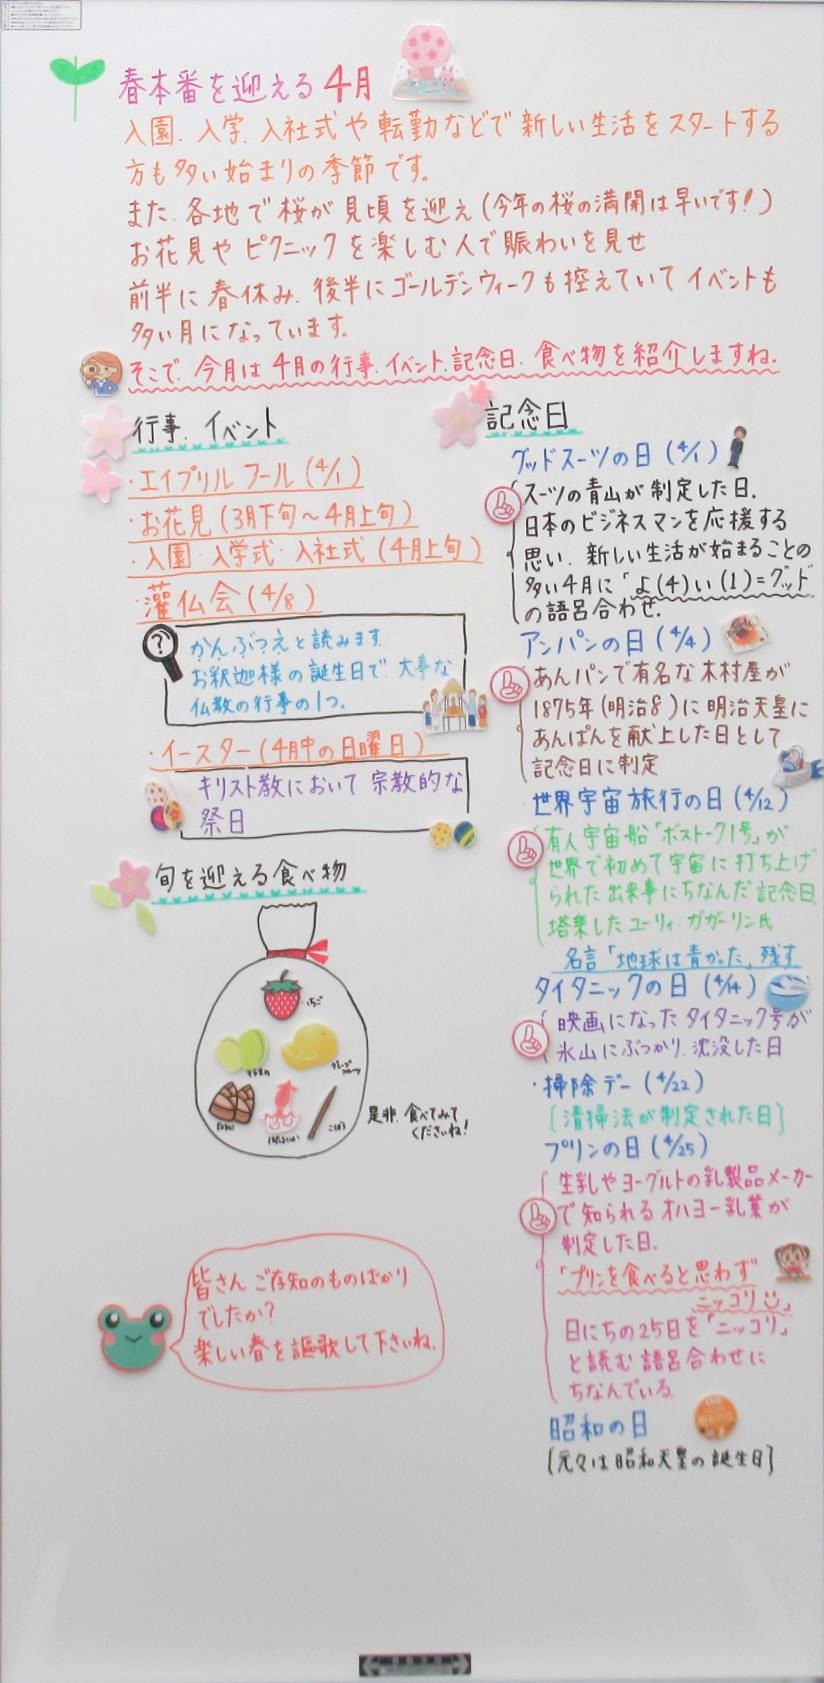 春本番を迎える4月
入園、入学、入社式や転勤などで新しい生活をスタートする
方も多い始まりの季節です。
また、各地で桜が見頃を迎え(今年の桜の満開は早いです!)
お花見やピクニックを楽しむ人で賑わいを見せ
前半に春休み、後半にゴールデンウィークも控えていてイベントも
多い月になっています。
そこで、今月は4月の行事、イベント、記念日、食べ物を紹介しますね。
行事、イベント
・エイプリルフール(4/1)
・お花見(3月下旬〜4月上旬)
・入園・入学式・入社式(4月上旬)
・灌仏会(4/8)
?
かんぶつえと読みます。
お釈迦様の誕生日で、大事な
仏教の行事の1つ。
・イースター(4月中の日曜日)
キリスト教において宗教的な
祭日
旬を迎える食べ物
いちご
グレープ
フルーツ
ごぼう
是非、食べてみて
くださいね!
皆さんご存知のものばかり
でしたか?
楽しい春を謳歌して下さいね。
記念日
グッドスーツの日(4/1)
スーツの青山が制定した日。
日本のビジネスマンを応援する
思い、新しい生活が始まることの
多い4月に「よ(4)い(1)=グッド
の語呂合わせ。
アンパンの日(4/4)
あんパンで有名な木村屋が
1875年(明治8)に明治天皇に
あんぱんを献上した日として
記念日に制定
・世界宇宙旅行の日(4/12)
有人宇宙船「ボストーク1号」が
世界で初めて宇宙に打ち上げ
られた出来事にちなんだ記念日
搭乗したユーリィ・ガガーリン氏
名言「地球は青かった」残す
タイタニックの日(4/14)
映画になったタイタニック号が
氷山にぶつかり、沈没した日
・掃除デー(4/22)
[清掃法が制定された日]
プリンの日(4/25)
生乳やヨーグルトの乳製品メーカー
で知られるオハヨー乳業が
制定した日。
「プリンを食べると思わず
ニッコリ」
日にちの25日を「ニッコリ」
と読む語呂合わせに
ちなんでいる
昭和の日
[元々は昭和天皇の誕生日]